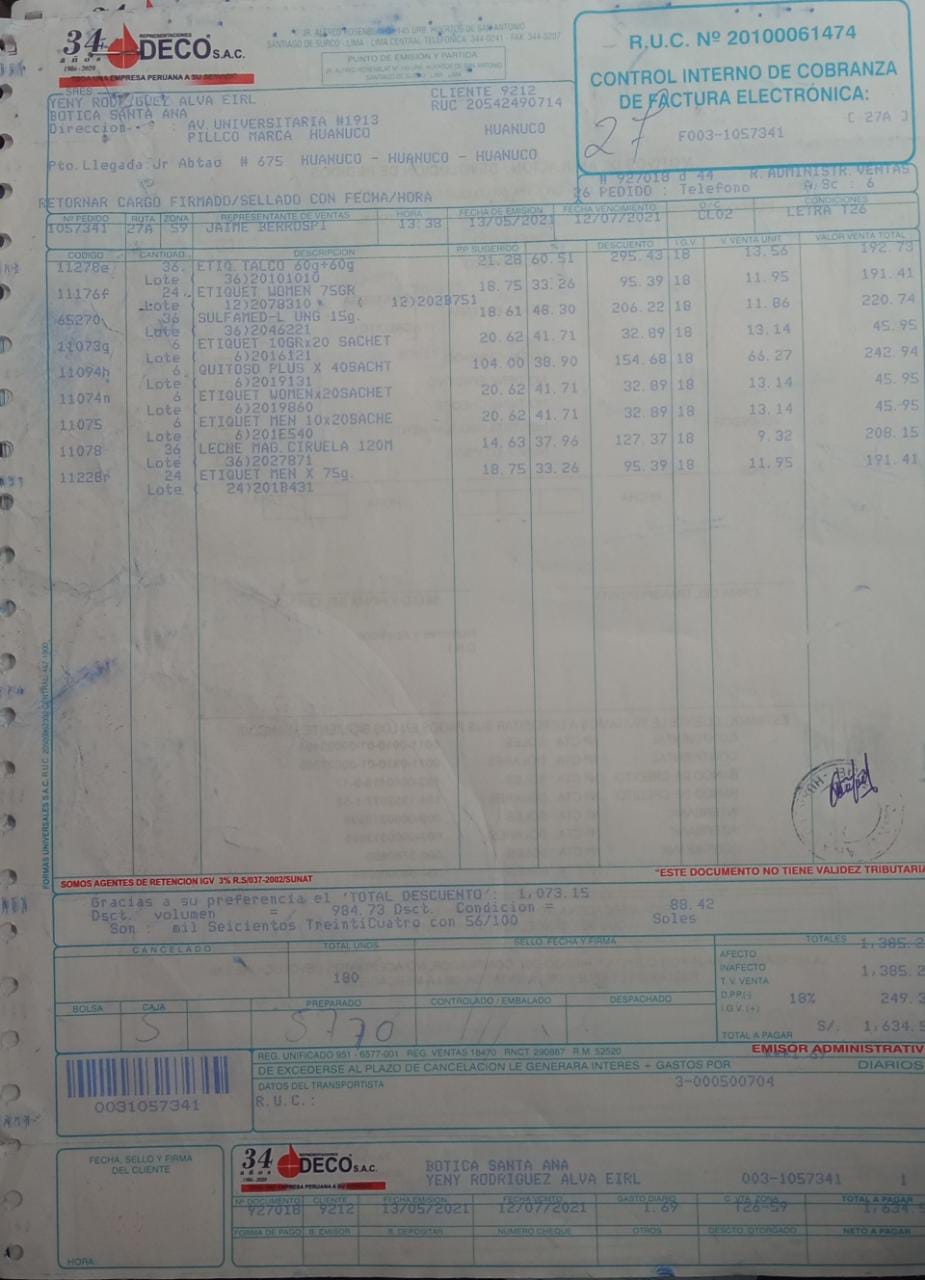 34 años
1986 - 2020
REPRESENTACIONES
DECO S.A.C.
TODA UNA EMPRESA PERUANA A SU SERVICIO
SANTIAGO DE SURCO - LIMA - LIMA CENTRAL TELEFONICA. 344-0241 - FAX 344-3207
PUNTO DE EMISIÓN Y PARTIDA
R.U.C. Nº 20100061474
CONTROL INTERNO DE COBRANZA
DE FACTURA ELECTRÓNICA:
[ 27A ]
27
F003-1057341
SRES
YENY RODRIGUEZ ALVA EIRL
BOTICA SANTA ANA
CLIENTE 9212
RUC 20542490714
Direccion : AV.UNIVERSITARIA #1913
PILLCO MARCA HUANUCO
HUANUCO
Pto.Llegada Jr Abtao # 675 HUANUCO - HUANUCO - HUANUCO
# 927018 d 44 R.ADMINISTR.VENTAS
26 PEDIDO : Telefono A/Sc : 6
RETORNAR CARGO FIRMADD/SELLADO CON FECHA/HORA
Nº PEDIDO RUTA ZONA REPRESENTANTE DE VENTAS HORA FECHA DE EMISION FECHA VENCIMIENTO O/C CONDICIONES
1057341 27A 59 JAIME BERROSPI 13:38 13/05/2021 12/07/2021 CL02 LETRA T26
CODIGO CANTIDAD DESCRIPCION PP. SUGERIDO % DESCUENTO I.G.V V. VENTA UNIT. VALOR VENTA TOTAL
11278e 36 ETIQ.TALCO 60g+60g 21.28 60.51 295.43 18 13.56 192.73
Lote ( 36)20101010
11176f 24 ETIQUET WOMEN 75GR 18.75 33.26 95.39 18 11.95 191.41
Lote ( 12)2078310 ( 12)202B751
65270 36 SULFAMED-L UNG 15g. 18.61 48.30 206.22 18 11.86 220.74
Lote ( 36)2046221
11073g 6 ETIQUET 10GRx20 SACHET 20.62 41.71 32.89 18 13.14 45.95
Lote ( 6)2016121
11094h 6 QUITOSO PLUS X 40SACHT 104.00 38.90 154.68 18 66.27 242.94
Lote ( 6)2019131
11074n 6 ETIQUET WOMENx20SACHET 20.62 41.71 32.89 18 13.14 45.95
Lote ( 6)2019860
11075 6 ETIQUET MEN 10x20SACHE 20.62 41.71 32.89 18 13.14 45.95
Lote ( 6)201E540
11078 36 LECHE MAG.CIRUELA 120M 14.63 37.96 127.37 18 9.32 208.15
Lote ( 36)2027871
11228r 24 ETIQUET MEN X 75g. 18.75 33.26 95.39 18 11.95 191.41
Lote ( 24)201B431
SOMOS AGENTES DE RETENCION IGV 3% R.S/037-2002/SUNAT
"ESTE DOCUMENTO NO TIENE VALIDEZ TRIBUTARIA
Gracias a su preferencia el 'TOTAL DESCUENTO': 1,073.15
Dsct. volumen = 984.73 Dsct. Condicion = 88.42
Son : mil Seicientos TreintiCuatro con 56/100 Soles
CANCELADO TOTAL UNDS SELLO, FECHA Y FIRMA TOTALES
180
AFECTO 1,385.2
INAFECTO
T. V. VENTA 1,385.2
D.PP.(-)
I.G.V. (+) 18% 249.3
TOTAL A PAGAR S/. 1,634.5
BOLSA CAJA PREPARADO CONTROLADO / EMBALADO DESPACHADO
5 5770
EMISOR ADMINISTRATIV
REG. UNIFICADO 951 - 6577-001 REG. VENTAS 18470 RNCT 290887 R.M. 52520
DE EXCEDERSE AL PLAZO DE CANCELACION LE GENERARA INTERES + GASTOS POR DIARIOS
DATOS DEL TRANSPORTISTA 3-000500704
R.U.C.:
0031057341
FECHA, SELLO Y FIRMA
DEL CLIENTE
HORA:
34 años
1986 - 2020
REPRESENTACIONES
DECO S.A.C.
TODA UNA EMPRESA PERUANA A SU SERVICIO
BOTICA SANTA ANA
YENY RODRIGUEZ ALVA EIRL 003-1057341 1
Nº DOCUMENTO CLIENTE FECHA EMISION FECHA VENCTO GASTO DIARIO C. VTA. ZONA TOTAL A PAGAR
927018 9212 13/05/2021 12/07/2021 1.69 T26-59 1,634.5
FORMA DE PAGO B. EMISOR B. DEPOSITAR NUMERO CHEQUE OTROS DESCTO. OTORGADO NETO A PAGAR